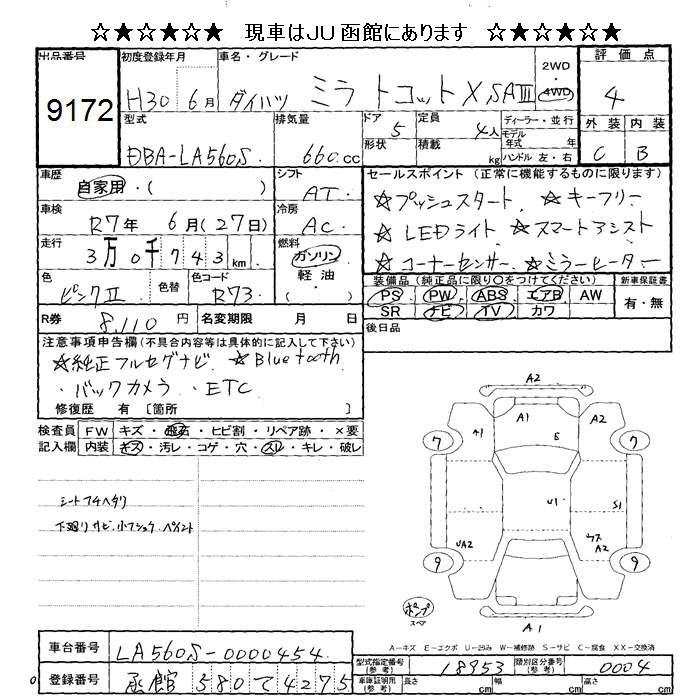 ☆★☆★☆★ 現車はJU函館にあります ☆★☆★☆★
出品番号 初度登録年月 車名・グレード 2WD・4WD 評価点
9172 H30 6月 ダイハツ ミラ トコット X SAⅢ 4
型式 排気量 ドア 定員 ディーラー・並行 外装 内装
DBA-LA560S 660cc 5 4人 モデル年式 年 C B
形状 積載 kg ハンドル 左・右
車歴 シフト セールスポイント(正常に機能するものに限ります)
自家用・( ) AT ☆プッシュスタート ☆キーフリー
車検 冷房
R7年 6月(27日) AC ☆LEDライト ☆スマートアシスト
走行 燃料
3万0千743km ガソリン ☆コーナーセンサー ☆ミラーヒーター
軽油・( )
色 色替 色コード 装備品(純正品に限り〇をつけてください) 新車保証書
ピンクⅡ R73 PS PW ABS エアB AW 有・無
SR ナビ TV カワ
R券 8,110円 名変期限 月 日 後日品
注意事項申告欄(不具合内容等は具体的に記入して下さい)
☆純正フルセグナビ ☆Bluetooth
・バックカメラ ・ETC
修復歴 有 〔箇所 〕
検査員 FW キズ・飛石・ヒビ割・リペア跡・×要
記入欄 内装 キズ・汚レ・コゲ・穴・スレ・キレ・破レ
シートフチヘタリ
下廻りサビ・小フショク・ペイント
A2
A1 A1 E A2
7 7
U1 S1
UA2 ウス A2
9 9
ポンプ
スペア
A1
A-キズ E-エクボ U-凹み W-補修跡 S-サビ C-腐食 XX-交換済
車台番号 LA560S-0000454
型式指定番号(参考) 18953 類別区分番号(参考) 0004
登録番号 函館 580て4275
車庫証明用(参考) 長さ cm 幅 cm 高さ cm